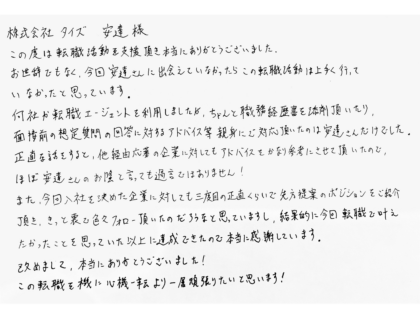 株式会社 タイズ 安達 様
この度は転職活動を支援頂き本当にありがとうございました。
お世辞でもなく、今回安達さんに出会えていなかったらこの転職活動は上手く行って
いなかったと思っています。
何社か転職エージェントを利用しましたが、ちゃんと職務経歴書を添削頂いたり、
面接前の想定質問の回答に対するアドバイス等 親身にご対応頂いたのは安達さんだけでした。
正直な話をすると、他経由応募の企業に対してもアドバイスをかなり参考にさせて頂いたので、
ほぼ安達さんのお陰と言っても過言ではありません!
また、今回入社を決めた企業に対しても三度目の正直くらいで先方提案のポジションをご紹介
頂き、きっと裏で色々フォロー頂いたのだろうなと思っていますし、結果的に今回転職で叶え
たかったことを思っていた以上に達成できたので本当に感謝しています。
改めまして、本当にありがとうございました!
この転職を機に心機一転より一層頑張りたいと思います!